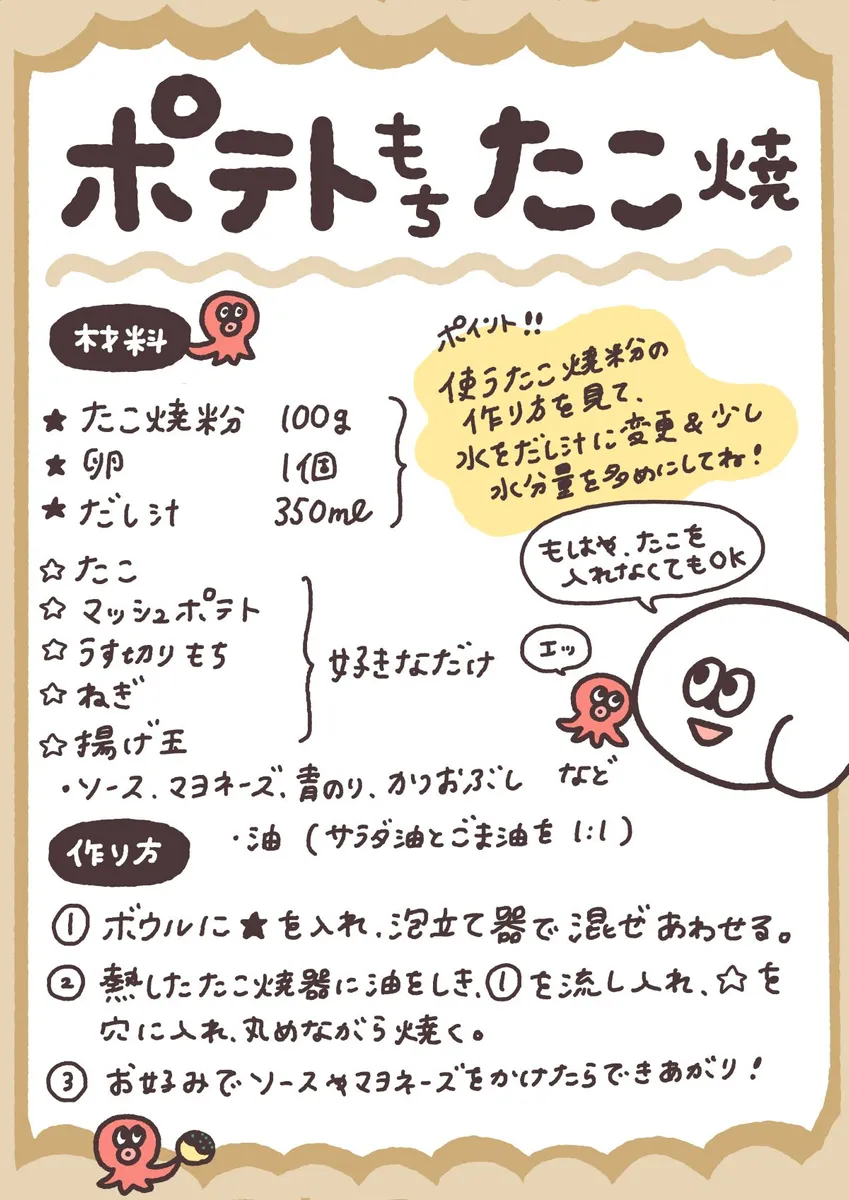 ポテトもちたこ焼
材料
★ たこ焼粉 100g
★ 卵 1個
★ だし汁 350ml
ポイント!!
使うたこ焼粉の
作り方を見て、
水をだし汁に変更&少し
水分量を多めにしてね!
☆ たこ
☆ マッシュポテト
☆ うす切りもち
☆ ねぎ
☆ 揚げ玉
好きなだけ
もしはや、たこを
入れなくてもOK
エッ
・ソース、マヨネーズ、青のり、かつおぶし など
・油 (サラダ油とごま油を 1:1)
作り方
① ボウルに★を入れ、泡立て器で混ぜあわせる。
② 熱したたこ焼器に油をしき、①を流し入れ、☆を
穴に入れ、丸めながら焼く。
③ お好みでソースやマヨネーズをかけたらできあがり!